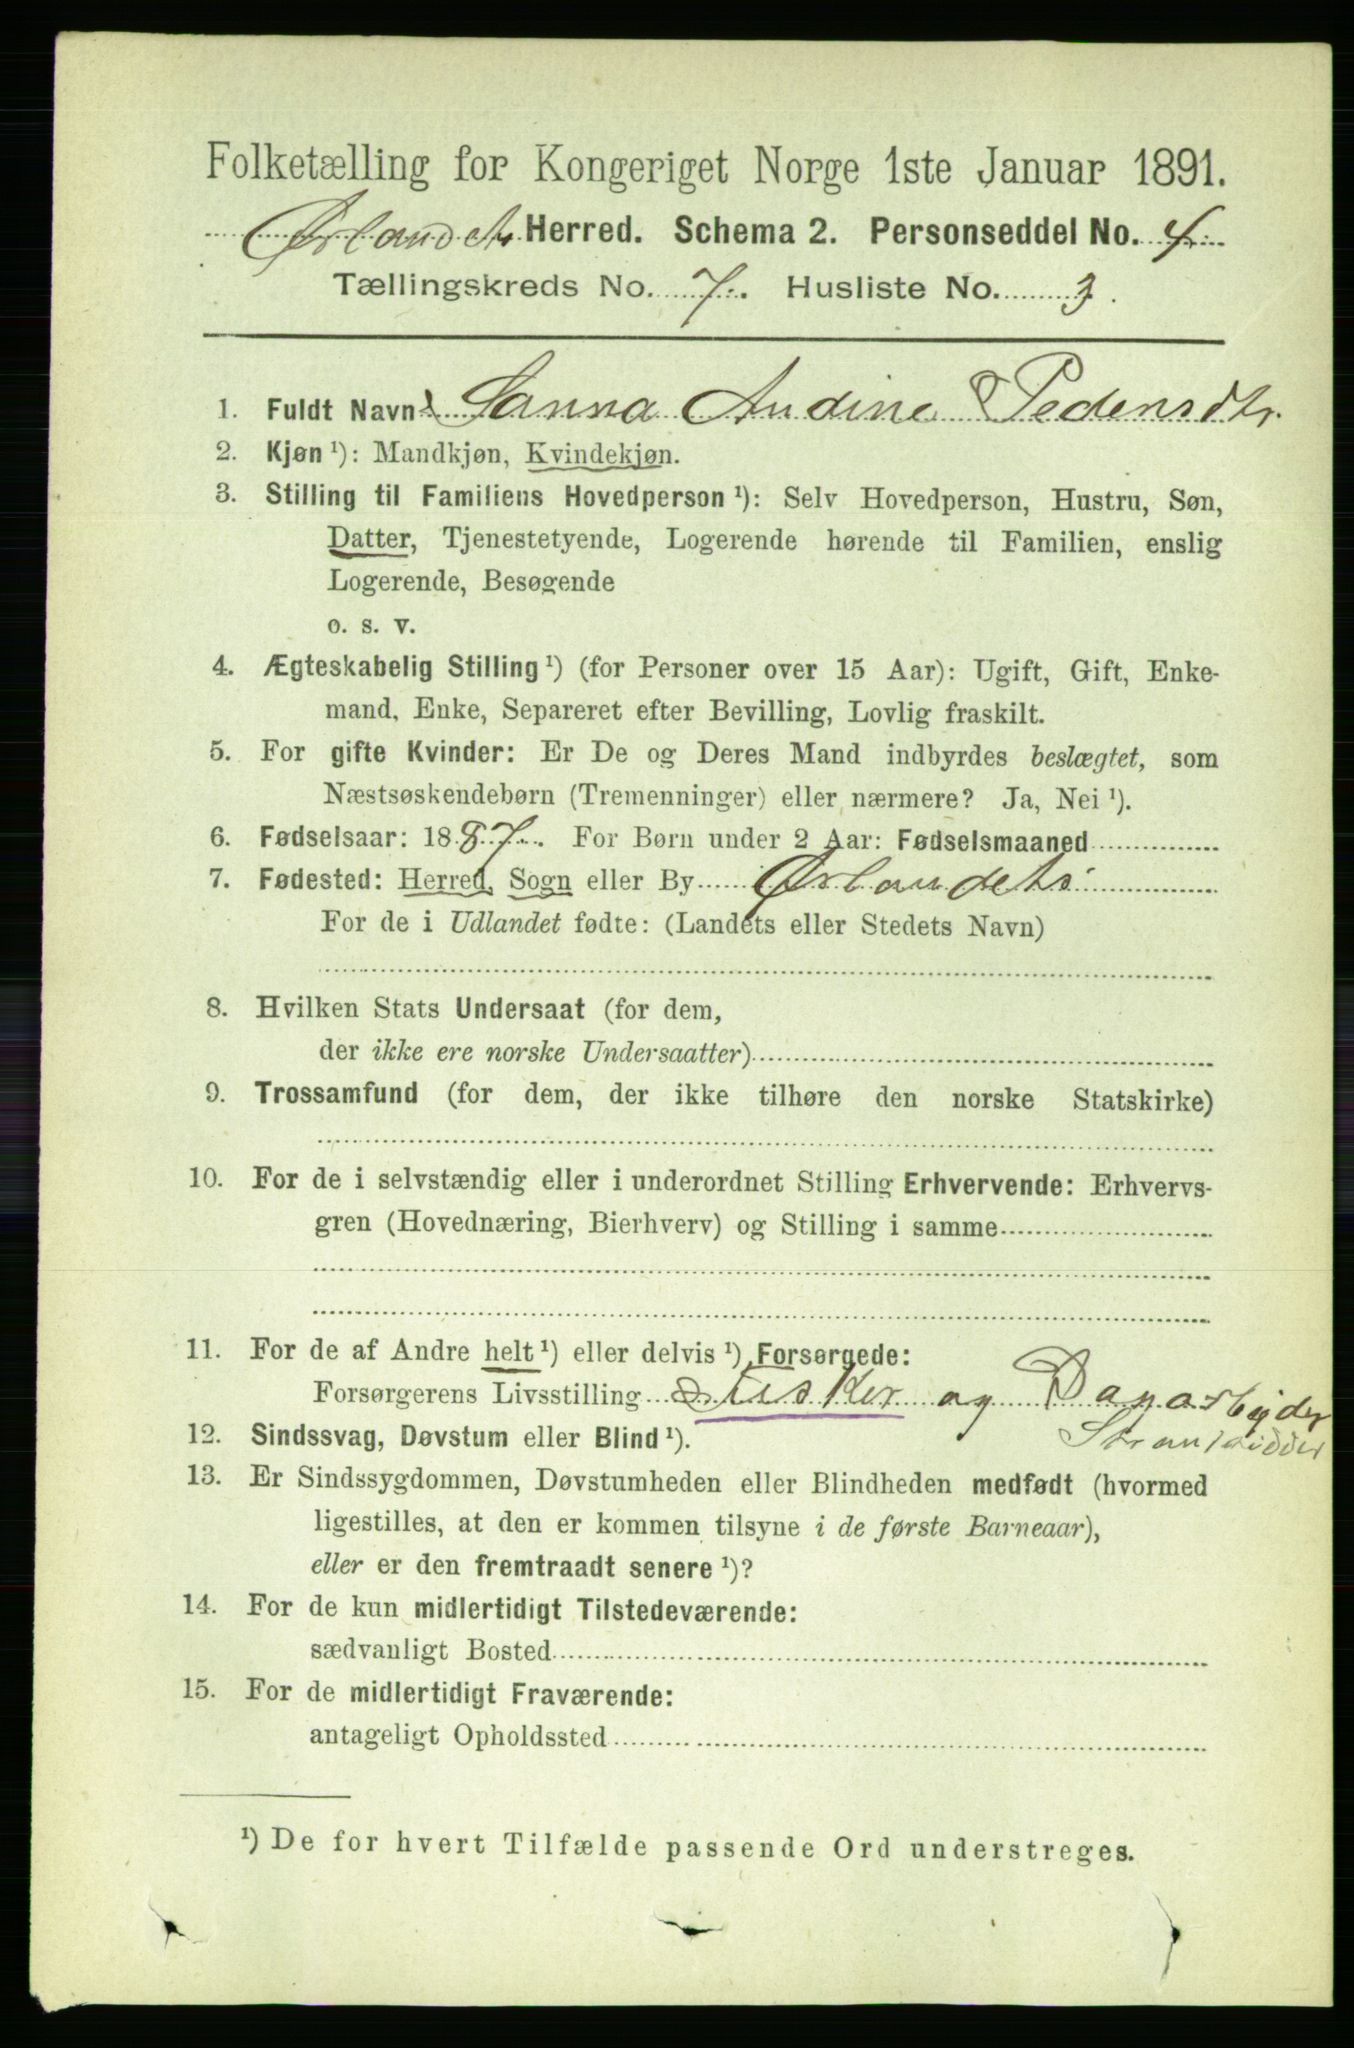 Folketælling for Kongeriget Norge 1ste Januar 1891.
Ørlandets Herred. Schema 2. Personseddel No. 4.
Tællingskreds No. 7. Husliste No. 3.
1. Fuldt Navn Sanna Andine Pedersdtr.
2. Kjøn ¹): Mandkjøn, Kvindekjøn.
3. Stilling til Familiens Hovedperson ¹): Selv Hovedperson, Hustru, Søn,
Datter, Tjenestetyende, Logerende hørende til Familien, enslig
Logerende, Besøgende
o. s. v.
4. Ægteskabelig Stilling ¹) (for Personer over 15 Aar): Ugift, Gift, Enke-
mand, Enke, Separeret efter Bevilling, Lovlig fraskilt.
5. For gifte Kvinder: Er De og Deres Mand indbyrdes beslægtet, som
Næstsøskendebørn (Tremenninger) eller nærmere? Ja, Nei ¹).
6. Fødselsaar: 1887. For Børn under 2 Aar: Fødselsmaaned
7. Fødested: Herred, Sogn eller By Ørlandets
For de i Udlandet fødte: (Landets eller Stedets Navn)
8. Hvilken Stats Undersaat (for dem,
der ikke ere norske Undersaatter)
9. Trossamfund (for dem, der ikke tilhøre den norske Statskirke)
10. For de i selvstændig eller i underordnet Stilling Erhvervende: Erhvervs-
gren (Hovednæring, Bierhverv) og Stilling i samme
11. For de af Andre helt ¹) eller delvis ¹) Forsørgede:
Forsørgerens Livsstilling Fisker og Dagarbejder
Strandsidder
12. Sindssvag, Døvstum eller Blind ¹).
13. Er Sindssygdommen, Døvstumheden eller Blindheden medfødt (hvormed
ligestilles, at den er kommen tilsyne i de første Barneaar),
eller er den fremtraadt senere ¹)?
14. For de kun midlertidigt Tilstedeværende:
sædvanligt Bosted
15. For de midlertidigt Fraværende:
antageligt Opholdssted
¹) De for hvert Tilfælde passende Ord understreges.